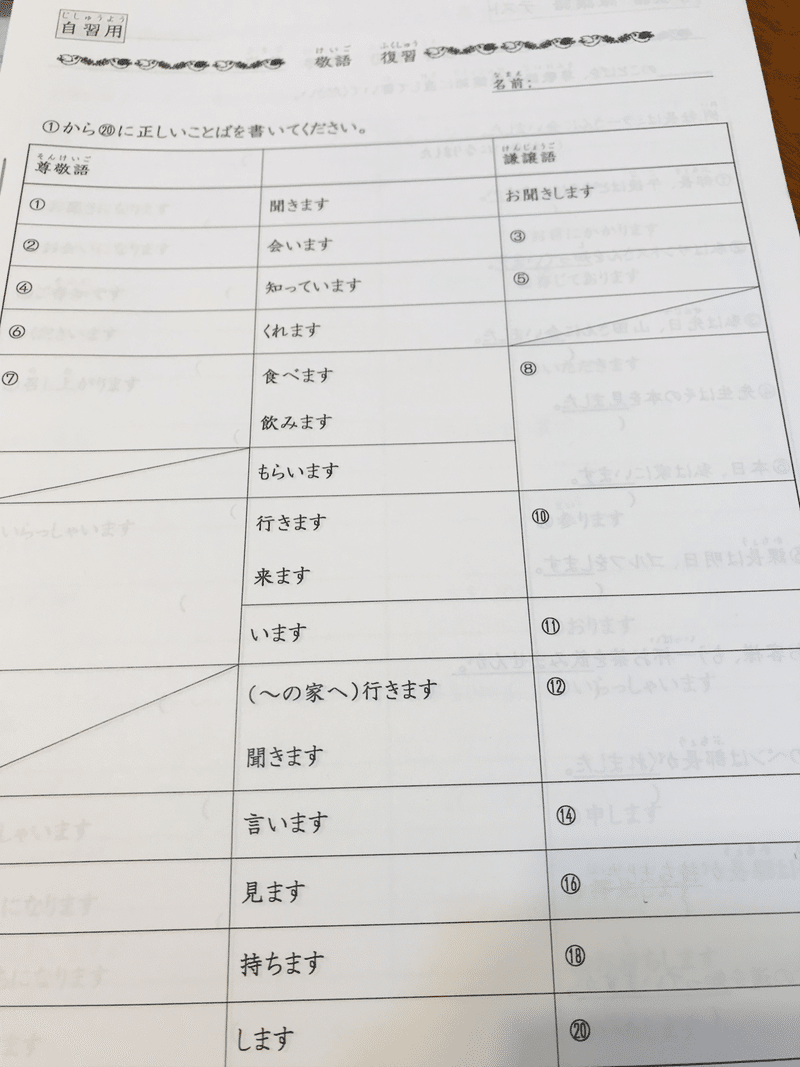 じしゅうよう
自習用
けいご ふくしゅう
敬語 復習
なまえ
名前:
①から⑳に正しいことばを書いてください。
そんけいご けんじょうご
尊敬語 謙譲語
① 聞きます お聞きします
② 会います ③
④ 知っています ⑤
⑥ くれます
⑦ 食べます ⑧
飲みます
もらいます
行きます ⑩
来ます
います ⑪
(〜の家へ)行きます ⑫
聞きます
言います ⑭
見ます ⑯
持ちます ⑱
します ⑳